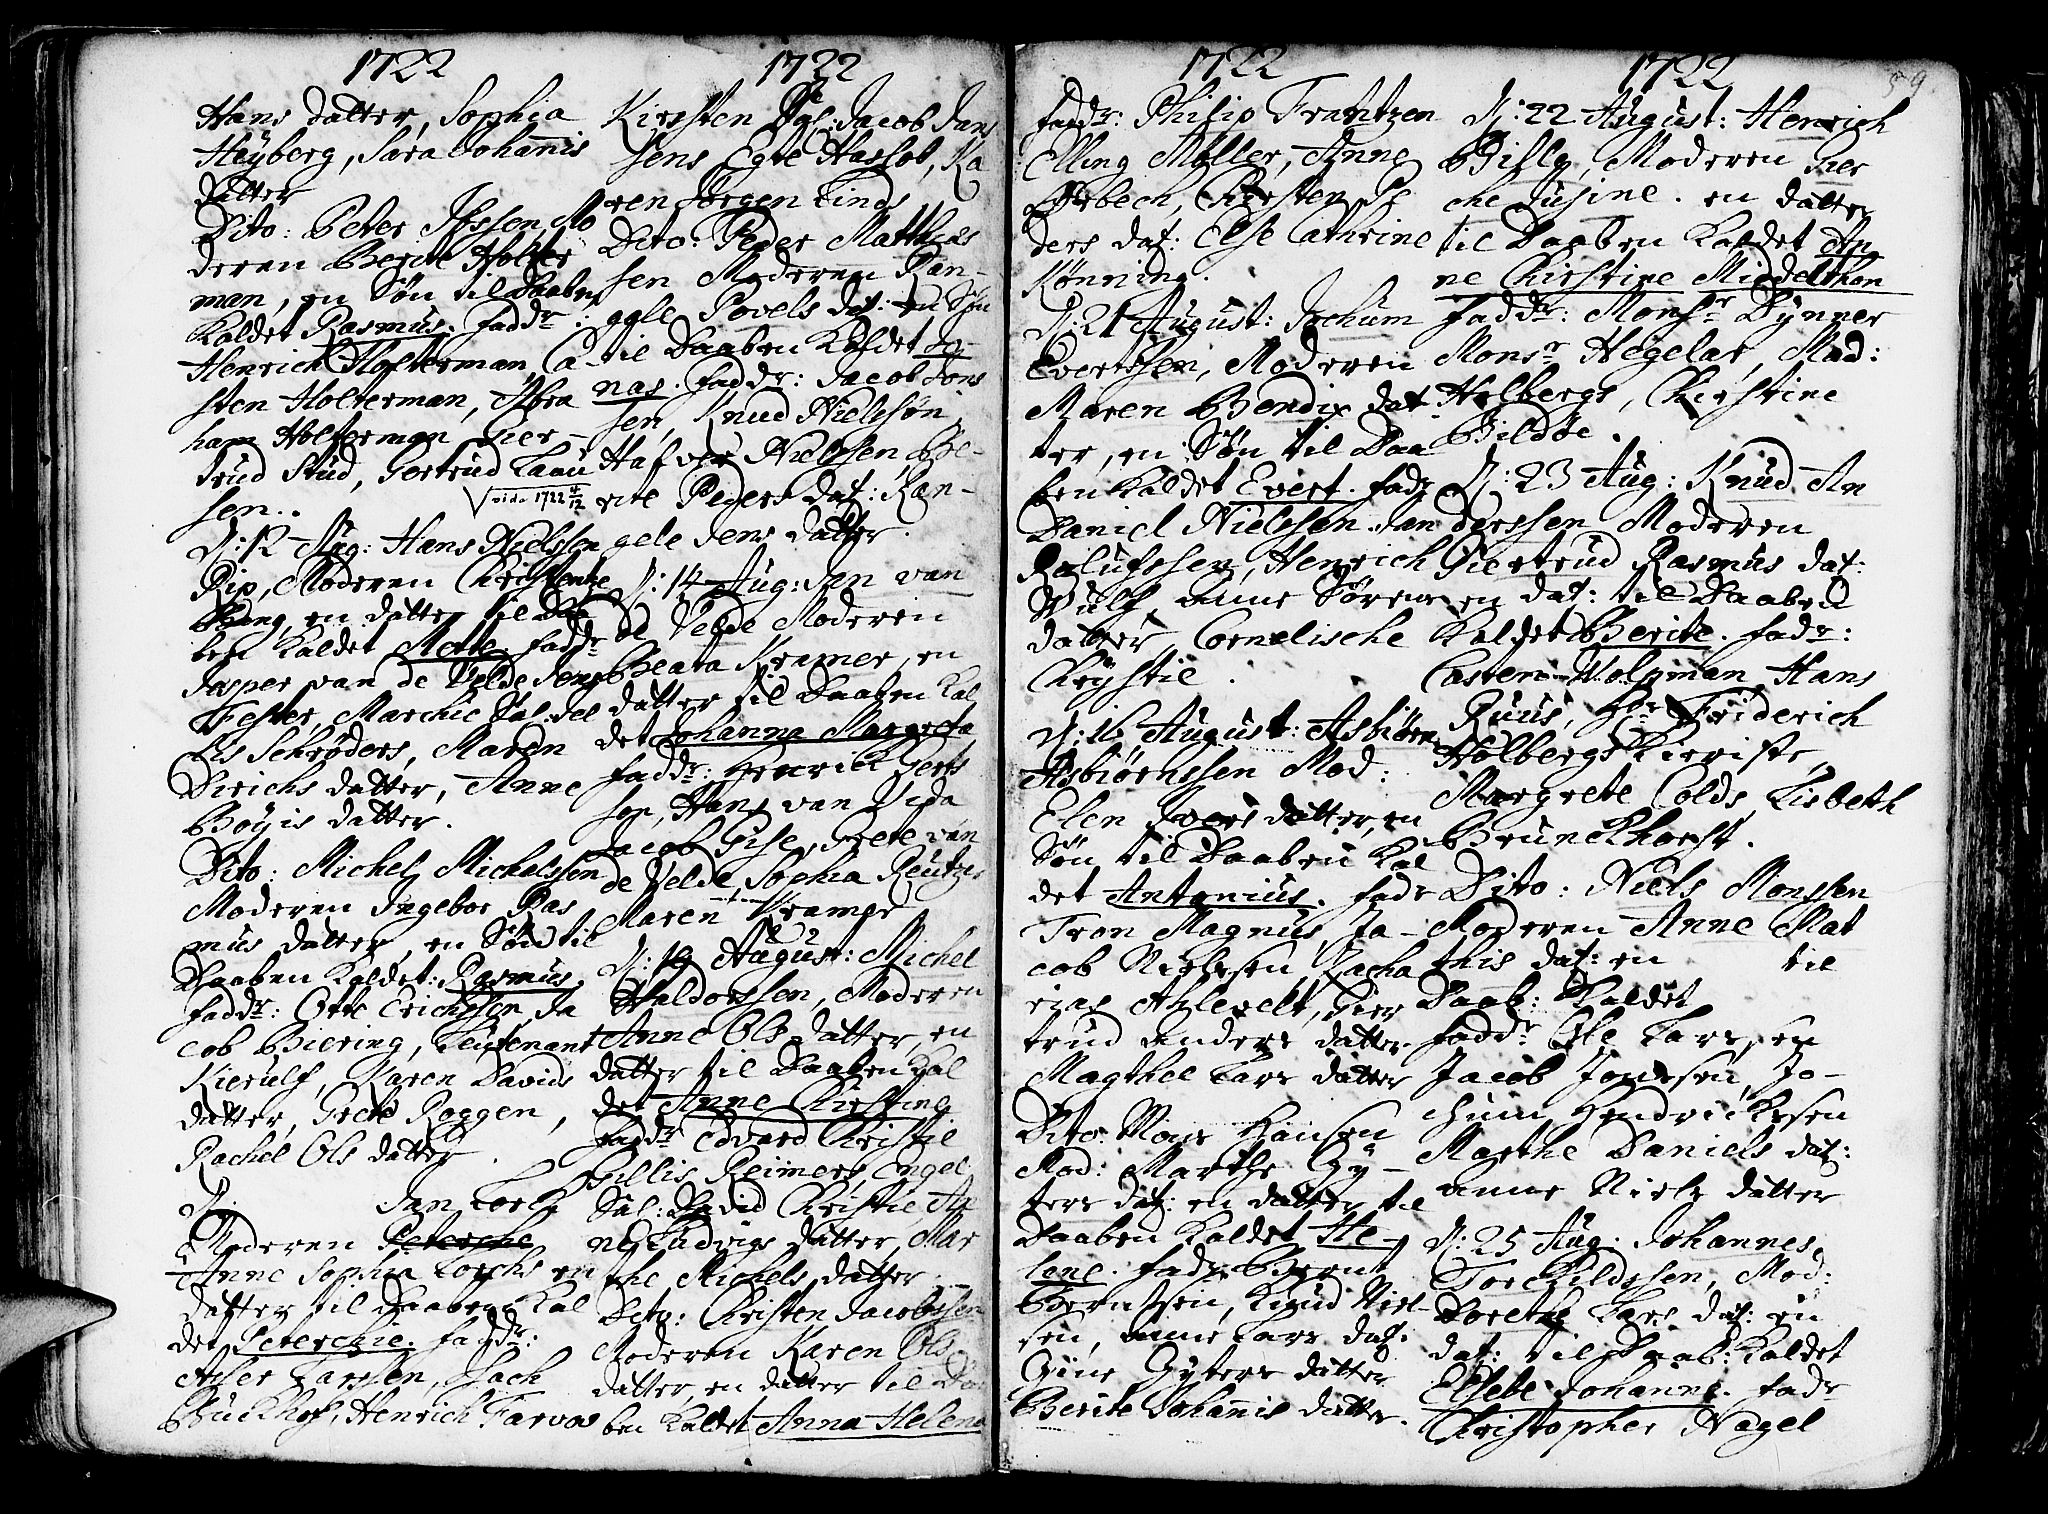 1722
Hans datter, Sophia
Heyberg, Sara Johannis
datter
Dito: Peter Ibssen, Mo
deren Berite Holter
man, en Søn til Daaben
Kaldet Rasmus. faddr:
Henrich Holterman, Ca-
sten Holterman, Abra
ham Holterman, Gier-
trud Stud, Gertrud Lauri
sen.
vide 1722 4/12
D: 12 Aug: Hans Nielssen
Rip, Moderen Christentze
Bang, en datter til Daa
ben kaldet Mette. faddr
Jasper van de Velde, Jens
Fester, Marchie Sal: del
Els Schrøders, Maren
Dirichs datter, Anne
Böyis datter.
Dito: Michel Michelssen
Moderen Ingebor Ras
mus datter, en Søn til
Daaben Kaldet: Rasmus.
faddr: Otte Erichssen, Ja
cob Biering, Leutenant
Kierulf, Karen Davids
datter, Grete Roggen,
Rachel Ols datter.
D: Jan Lork
Moderen Petersche
Anne Sophia Lorchs en
datter til Daaben Kal
det Peterchie. faddr:
Asser Larssen, Isach
Buckhof, Henrich Farvow
1722
Kirsten Sal: Jacob Jans
sens, Egte Hassob, Ka
ren Jørgen Linds
Dito: Peder Matthias
sen Moderen Ran-
gele Povels dat: en Søn
til Daaben Kaldet Jo-
nas. faddr: Jacob Jons
sen, Knud Nielssøn
Hafvor Nielssen, Be-
rite Peders dat: Ran-
gele Jens datter.
D: 14 Aug: Jan van
de Velde Moderen
Beata Kramer, en
datter til Daaben Kal
det Johanna Margreta
faddr: Henrich Gerts
sen, Hans van Vida
Jacob Gise, Grete van
de Velde, Sophia Reutz
Maren Kramer
D: 19 August: Michel
Haldorssen, Moderen
Anne Ols datter, en
datter til Daaben Kal
det Anne Christine
faddr Edvard Christie
Gillis Reimers, Engel
Sal: David Christie, An
ne Ludvigs datter, Mar
the Michels datter.
Dito: Christen Jacobssen
Moderen Karen Ols
datter, en datter til Daa
ben kaldet Anna Helena
1722
faddr: Philip Frantzen
Elling Møller, Anne
Ørbech, Kirsten Pe
ders dat: Else Cathrine
Kønning.
D: 21 August: Jochum
Evertssen, Moderen
Maren Bendix dat
ter, en Søn til Daa
ben kaldet Evert. fadr
Daniel Nielssen. Jan
Rolufssen, Henrich
Wulf, anne Sørens
datter, Cornelische
Chrystie.
D: 16 August: Asbiørn
Asbiørnssen Mod:
Elen Ivers datter, en
Søn til Daaben Kal
det Antonius. fadr
Tron Magnus, Ja-
cob Nielssen, Zacha
rias Ahlevelt, Gier
trud Anders datter.
Magthel Lars datter
Dito: Mons Hansen
Mod: Marthe Gy-
ters dat: en datter til
Daaben Kaldet He-
lene. fadr. Bernt
Berntsen, Knud Niel-
sen, anne Lars dat:
Gine Gyters datter
Berite Johannis datter.
1722
59
D: 22 August: Henrich
Billy, Moderen Pier
che Jusine. en datter
til Daaben Kaldet An
ne Christine Middelthon
faddr: Monsr Dynner
Monsr Hegelar, Mad:
Holbergs, Christine
Bildøe.
D: 23 Aug: Knud An
derssen Moderen
Giertrud Rasmus dat:
en dat: til Daaben
Kaldet Berite. fadr:
Casten Wolpman, Hans
Ruus, Hr Friderich
Holbergs Kieriste,
Margrete Colds, Lisbeth
Brunckhorst.
Dito: Niels Monssen
Moderen Anne Mat
this dat: en til
Daab: Kaldet
faddr Ole Larssen
Jacob Jonssen, Jo-
chum Hendrickssen
Marthe Daniels dat:
anne Niels datter
D: 25 Aug: Johannes
Torckildssen, Mod:
Dorethe Lars dat: en
dat: til Daab: Kaldet
Elsebe Johanna. fadr
Christopher Nagel